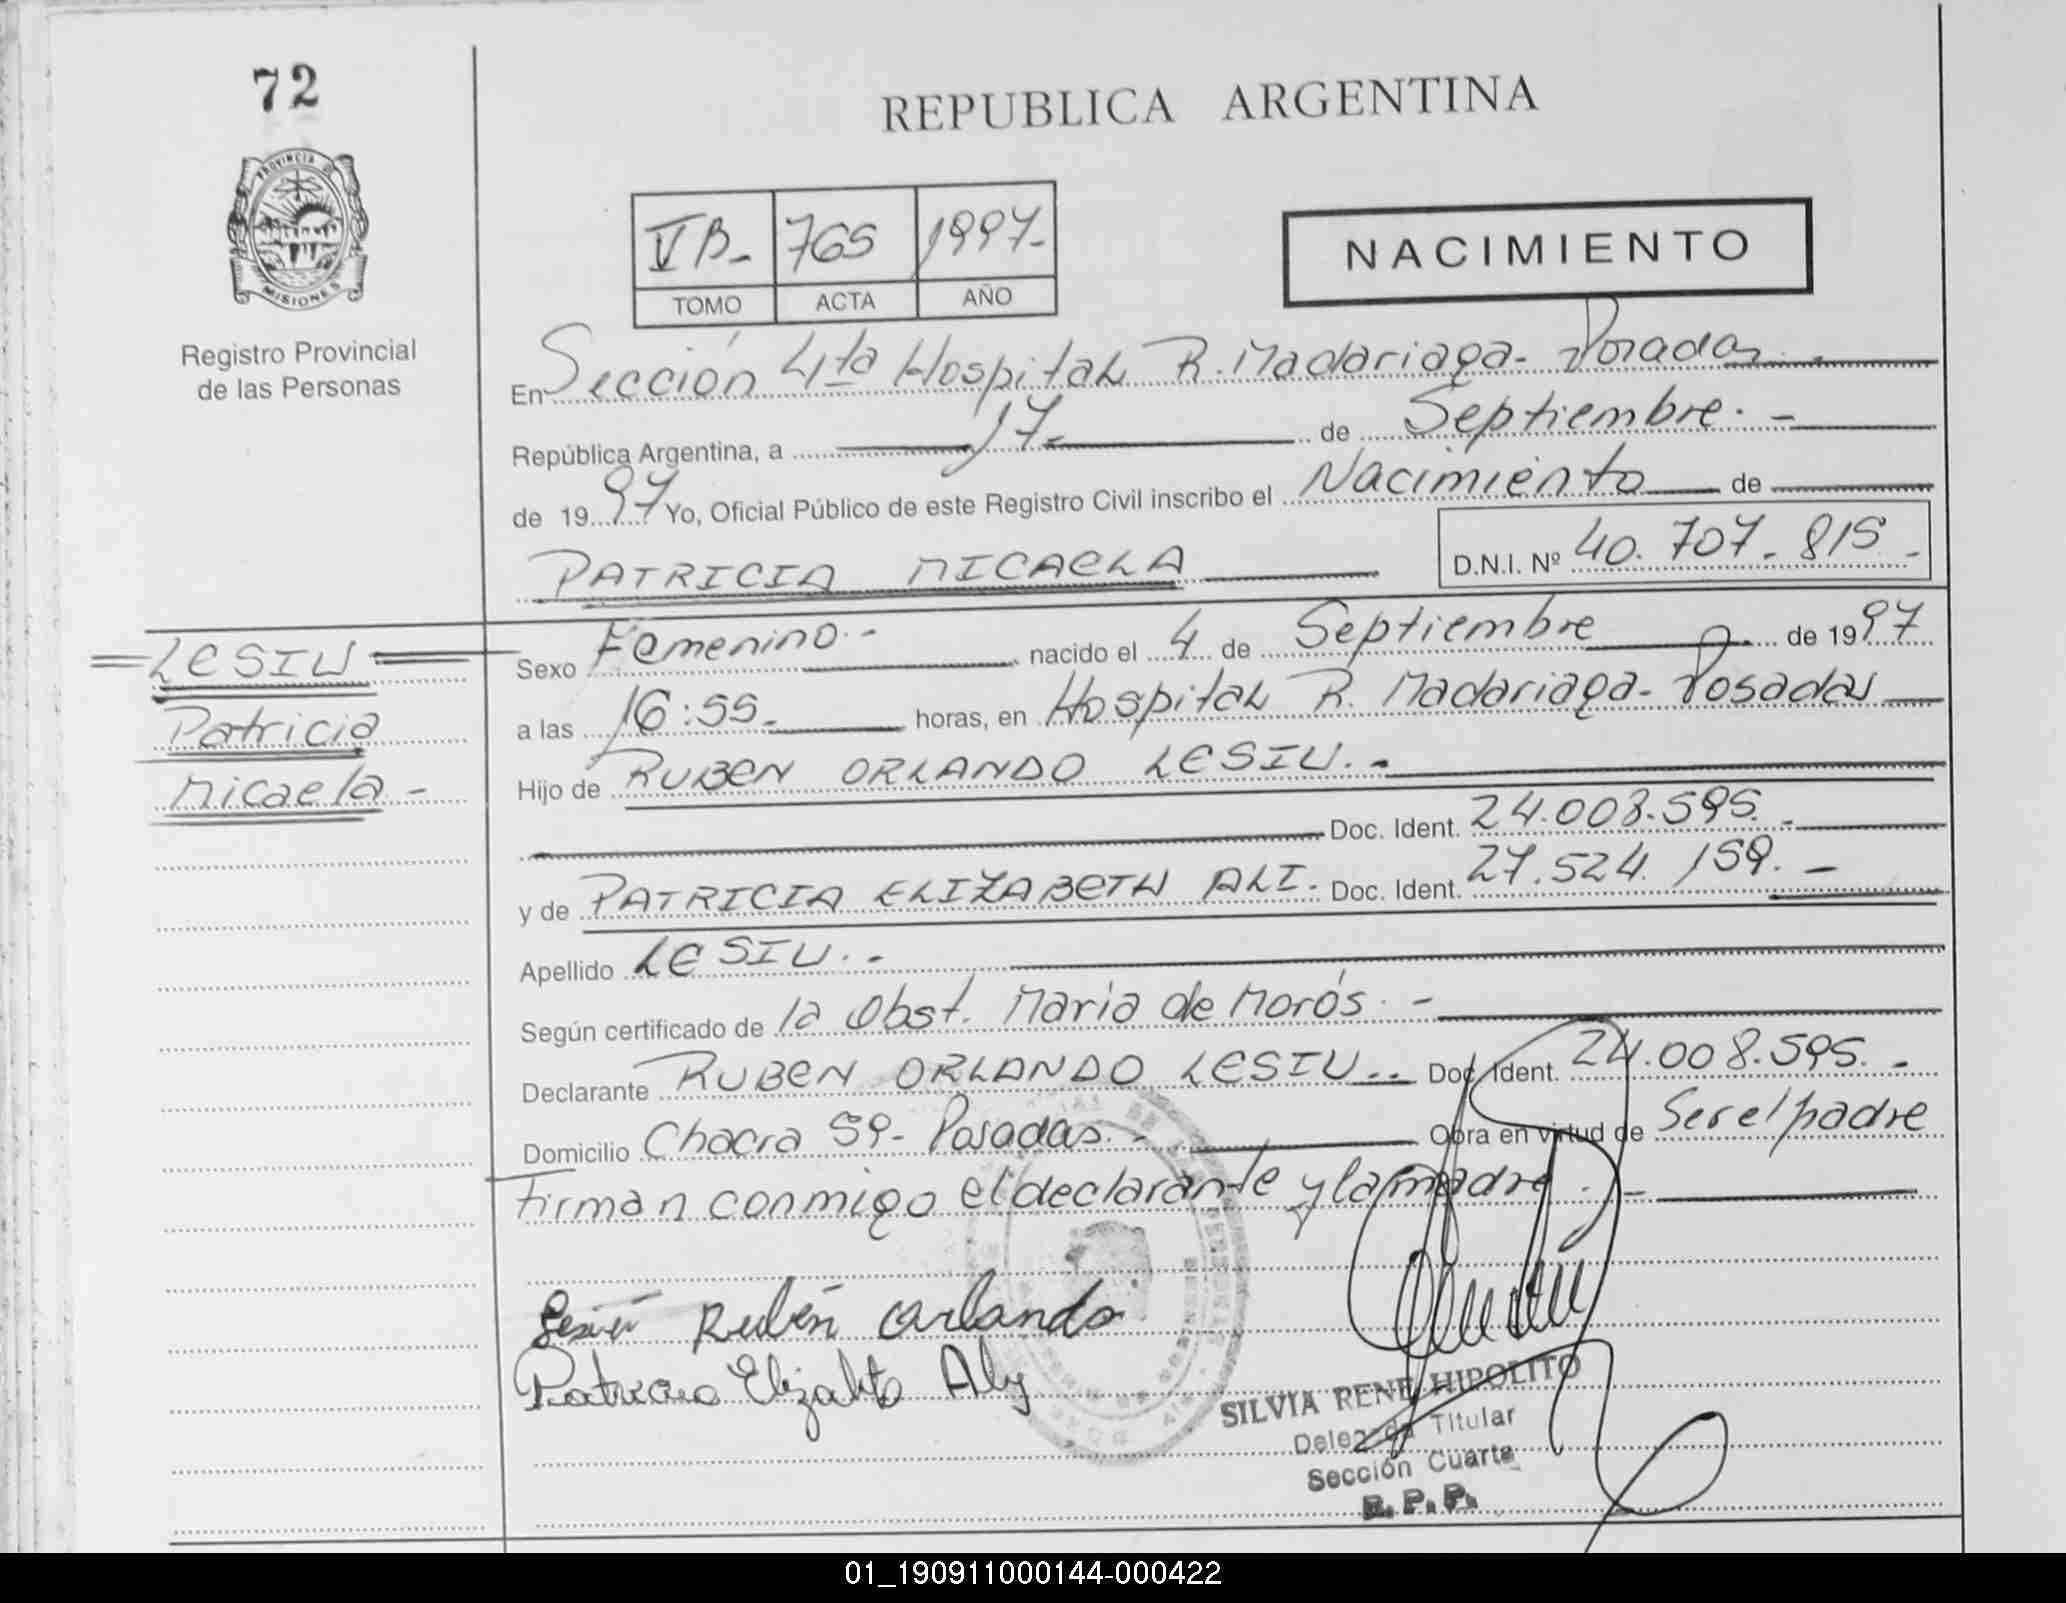 72
REPUBLICA ARGENTINA
PROVINCIA DE
MISIONES
Registro Provincial
de las Personas
VB- 765 1997-
TOMO ACTA AÑO
NACIMIENTO
En Sección 4ta Hospital R. Madariaga- Posadas.-
República Argentina, a 17- de Septiembre.-
de 1997 Yo, Oficial Público de este Registro Civil inscribo el Nacimiento de
PATRICIA MICAELA D.N.I. Nº 40.707.815-
LESIU
Patricia
Micaela-
Sexo Femenino.- nacido el 4 de Septiembre de 1997
a las 16:55- horas, en Hospital R. Madariaga- Posadas
Hijo de RUBEN ORLANDO LESIU.-
Doc. Ident. 24.008.595.-
y de PATRICIA ELIZABETH ALI. Doc. Ident. 27.524.159.-
Apellido LESIU.-
Según certificado de la Obst. Maria de Morós.-
Declarante RUBEN ORLANDO LESIU.. Doc. Ident. 24.008.595.-
Domicilio Chacra 59- Posadas.- Obra en virtud de Ser el padre
Firman conmigo el declarante y la madre.-
Lesiu Rubén Orlando
Patricia Elizabeth Aly
SILVIA RENE HIPOLITO
Delegada Titular
Sección Cuarta
R.P.P.
01_190911000144-000422